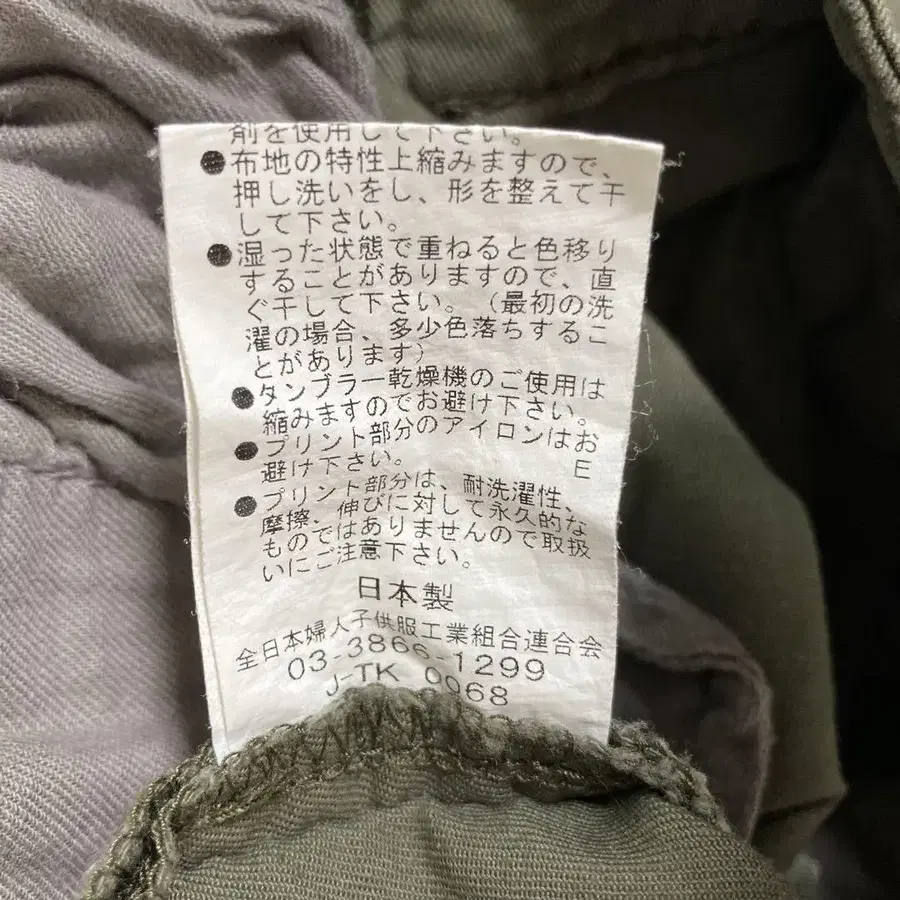 剤を使用して下さい。
●布地の特性上縮みますので、
押し洗いをし、形を整えて干
して下さい。
●湿った状態で重ねると色移り
することがありますので、直
ぐ干して下さい。（最初の洗
濯の場合、多少色落ちするこ
とがあります）
●タンブラー乾燥機のご使用は
縮みますのでお避け下さい。
●プリント部分のアイロンはお
避け下さい。 E
●プリント部分は、耐洗濯性、
摩擦、伸びに対して永久的な
ものではありませんので取扱
いにご注意下さい。
日本製
全日本婦人子供服工業組合連合会
03-3866-1299
J-TK 0068